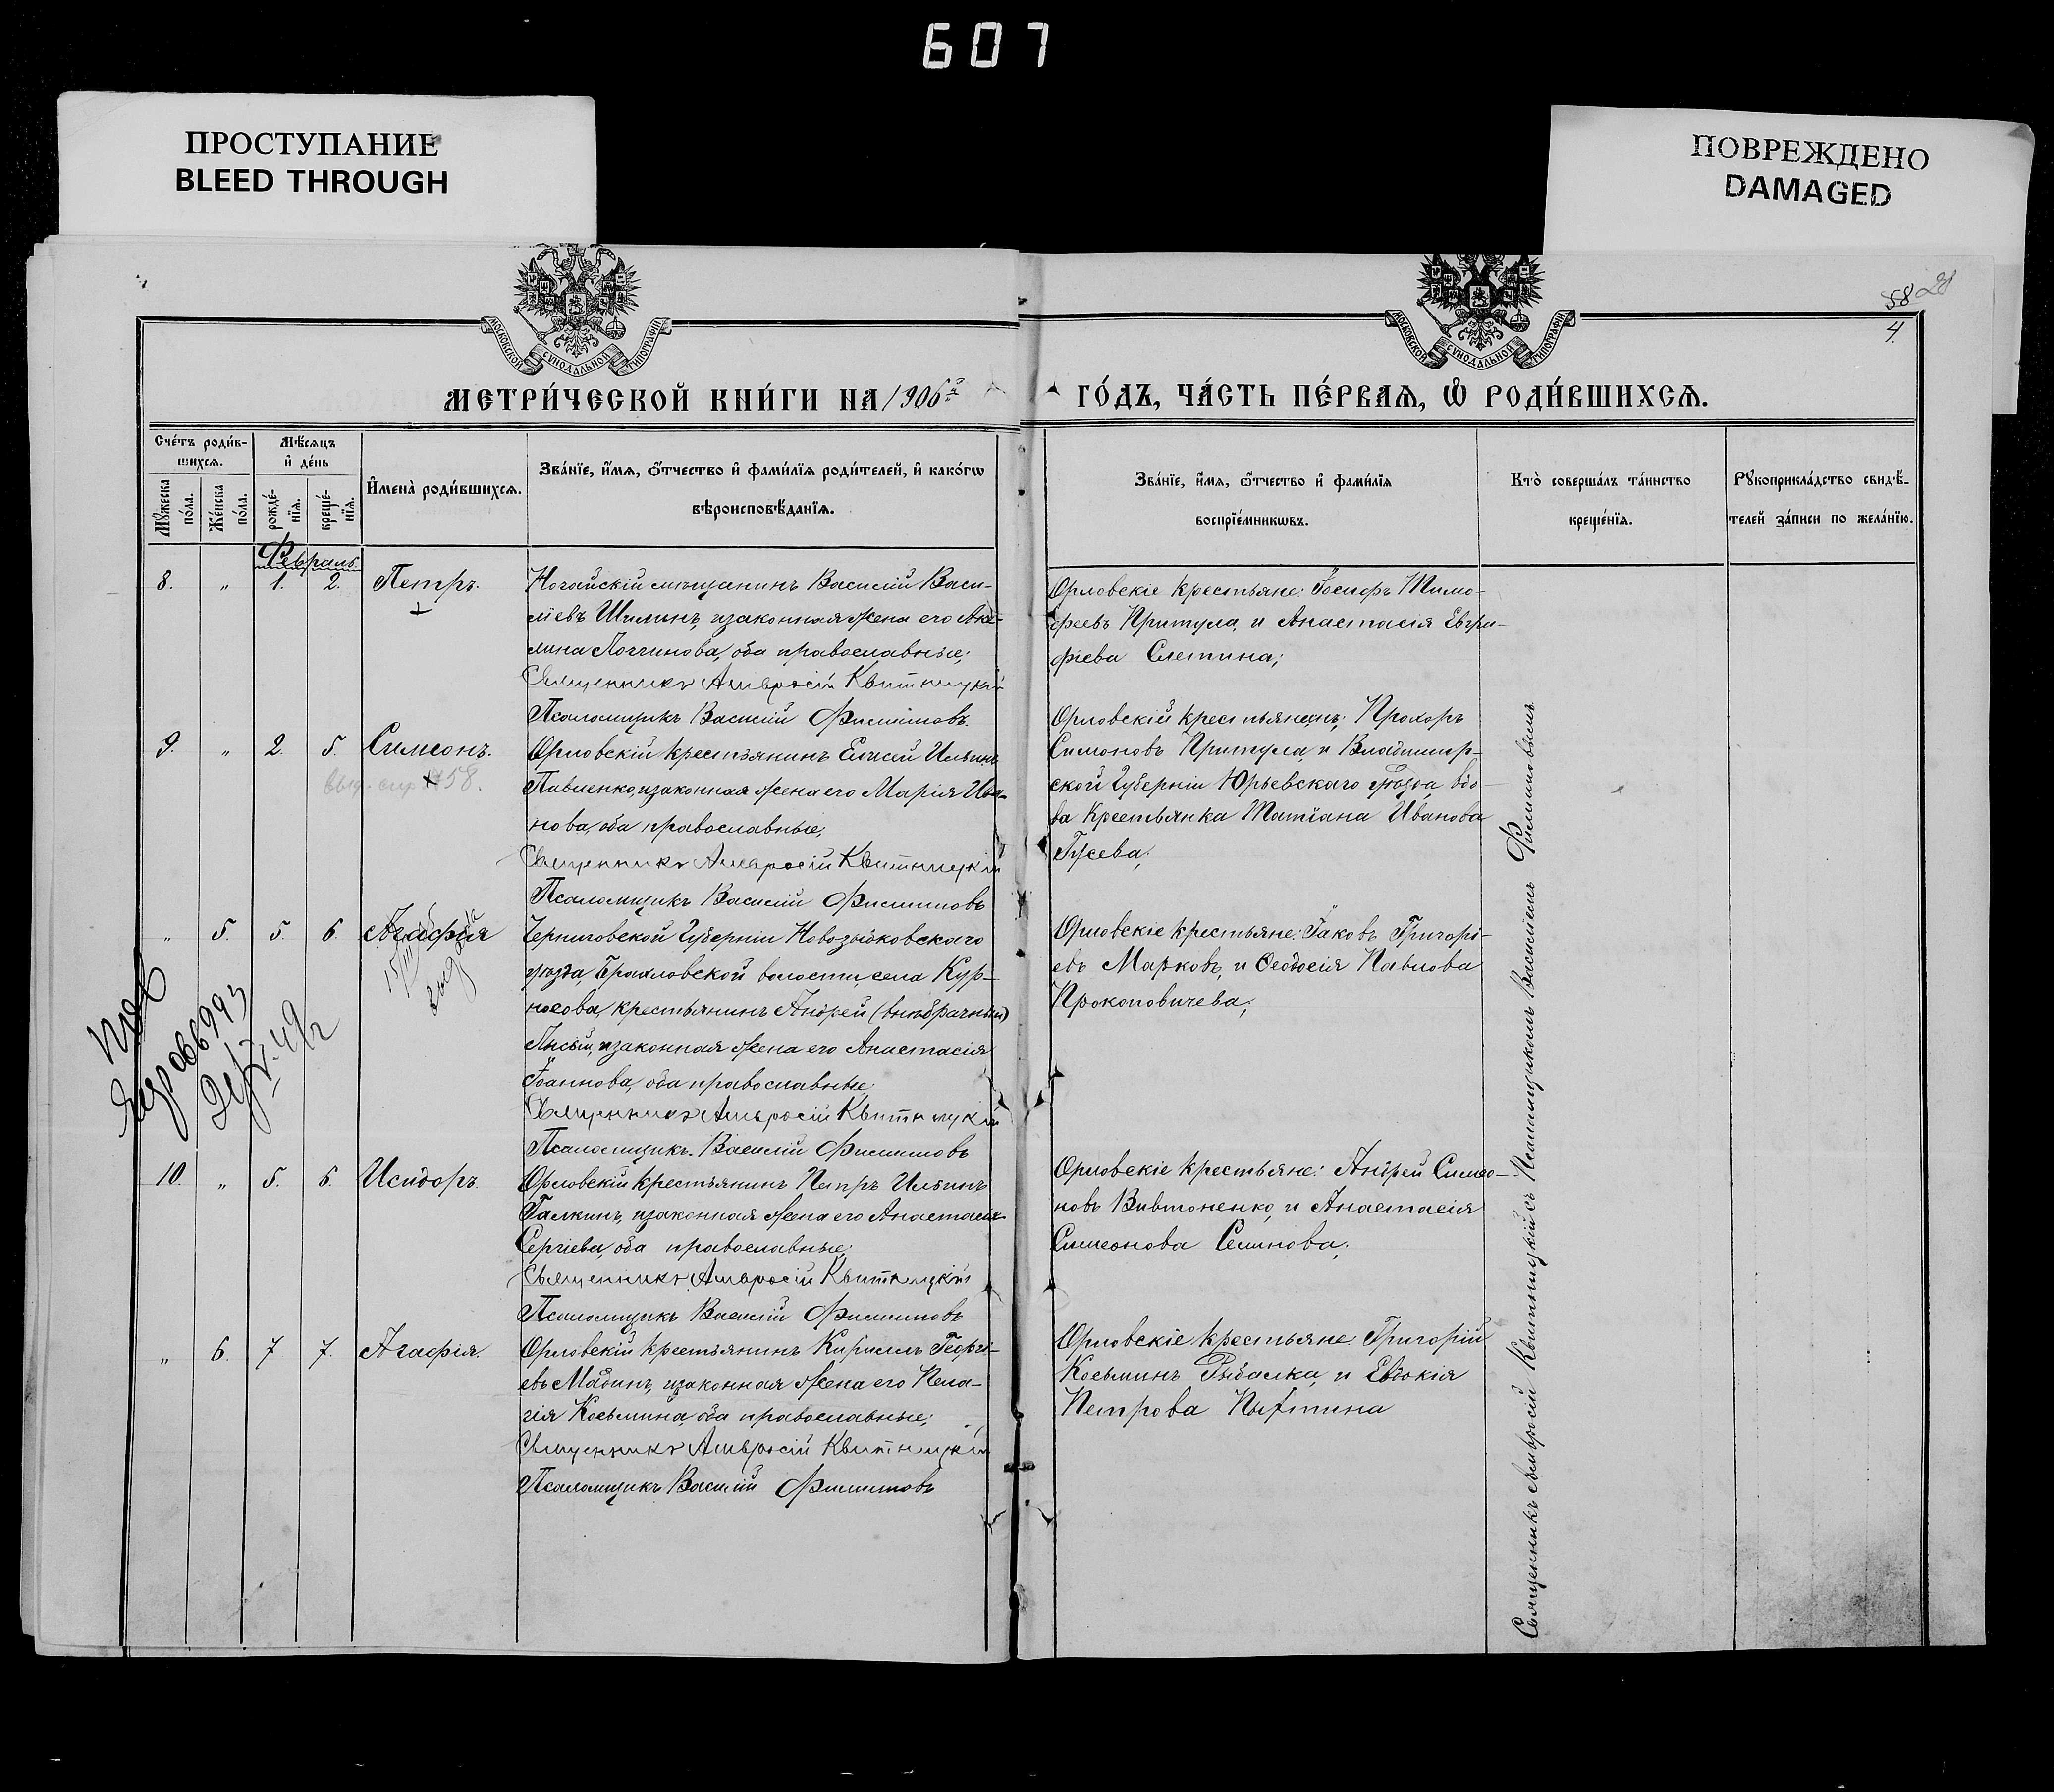 607
ПРОСТУПАНИЕ
BLEED THROUGH
ПОВРЕЖДЕНО
DAMAGED
МОСКОВСКОЙ СѴНОДАЛЬНОЙ ТИПОГРАФІИ
МОСКОВСКОЙ СѴНОДАЛЬНОЙ ТИПОГРАФІИ
58 28
4
МЕТРИ́ЧЕСКОЙ КНИ́ГИ НА 1906й
ГО́ДЪ, ЧА́СТЬ ПЕ́РВАѦ, Ѡ҆ РОДИ́ВШИХСѦ.
Сче́тъ роди́в-
шихсѧ.
Мѣ́сѧцъ
и҆ де́нь
Мꙋ́жеска по́ла.
Же́нска по́ла.
рожде́-нїѧ.
креще́-нїѧ.
И҆мена̀ роди́вшихсѧ.
Зва́нїе, и҆́мѧ, ѻ҆́тчество и҆ фами́лїѧ роди́телей, и҆ како́гѡ
вѣроисповѣ́данїѧ.
Зва́нїе, и҆́мѧ, ѻ҆́тчество и҆ фами́лїѧ
воспрїе́мникѡвъ.
Кто̀ соверша́лъ та́инство
креще́нїѧ.
Рꙋкоприкла́дство свидѣ́-
телей за́писи по жела́нїю.
Февраль
8. " 1. 2. Петръ.
Ногайскій мѣщанинъ Василій Васи-
ліевъ Шилинъ, и законная жена его Аки-
лина Логгинова, оба православные;
Священникъ Амвросій Квитницкій
Псаломщикъ Василій Филимовъ
Орловскіе крестьяне: Іосифъ Тимо-
феевъ Притула, и Анастасія
Слетина;
9. " 2. 5. Симеонъ.
58.
Орловскій крестьянинъ Елисей Ильинъ
Павленко, и законная жена его Марія Ива-
нова, оба православные;
Священникъ Амвросій Квитницкій
Псаломщикъ Василій Филимовъ
Орловскій крестьянинъ: Прохоръ
Симоновъ Притула, и Владимир-
ской Губерніи Юрьевскаго уѣзда, вдо-
ва крестьянка Татіана Иванова
Гусева;
" 5. 5. 6. Агафія
выдана
Черниговской Губерніи Новозыбковскаго
уѣзда, волости, села Кур-
носова, крестьянинъ Андрей (внѣбрачный)
Лысый, и законная жена его Анастасія
Іоаннова, оба православные;
Священникъ Амвросій Квитницкій
Псаломщикъ Василій Филимовъ
Орловскіе крестьяне: Іаковъ Григорі-
евъ Марковъ, и Ѳеодосія Павлова
Прокоповичева;
10. " 5. 6. Исидоръ.
Орловскій крестьянинъ Петръ Ильинъ
Галкинъ, и законная жена его Анастасія
Сергіева, оба православные;
Священникъ Амвросій Квитницкій
Псаломщикъ Василій Филимовъ
Орловскіе крестьяне: Андрей Симео-
новъ Вивтоненко, и Анастасія
Симеонова Семинова;
" 6. 7 7. Агафія.
Орловскій крестьянинъ Кириллъ Георгі-
евъ Мадинъ, и законная жена его Пела-
гія Косьмина, оба православные;
Священникъ Амвросій Квитницкій
Псаломщикъ Василій Филимовъ
Орловскіе крестьяне: Григорій
Косьминъ Рыбалка, и Евдокія
Петрова
Священникъ Амвросій Квитницкій съ Псаломщикомъ Василіемъ Филимовымъ